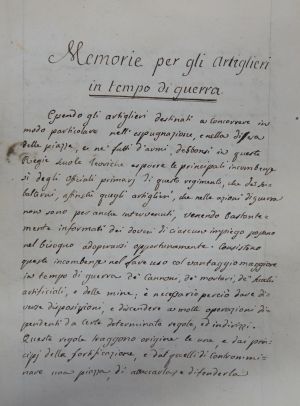 Memorie per gli Artiglieri
in tempo di guerra
Essendo gli artiglieri destinati a concorrere in
modo particolare nell'espugnazione, e nella difesa
delle piazze, e ne' fatti d'armi, debbonsi in queste
Regie Scuole Teoriche esporre le principali incombenze
si degli Ofiziali primarj di questo regimento, che de' su-
balterni, afinchè quegli artiglieri, che nelle azioni di guerra
non sono per anche intervenuti, venendo bastante-
mente informati dei doveri di ciascun impiego possano
nel bisogno adoperarsi opportunamente. Consistono
queste incombenze nel fare uso col vantaggio maggiore
in tempo di guerra de' Cannoni, de' mortari, de' fuochi
artificiali, e delle mine; è necessario perciò dare di-
verse disposizioni, e discendere a molte operazioni di-
pendenti da certe determinate regole, ed indirizzi.
Queste regole traggono origine le une, e dai prin-
cipj della fortificazione, e dal quelli di contrommi-
nare una piazza, di attaccarla, e difenderla